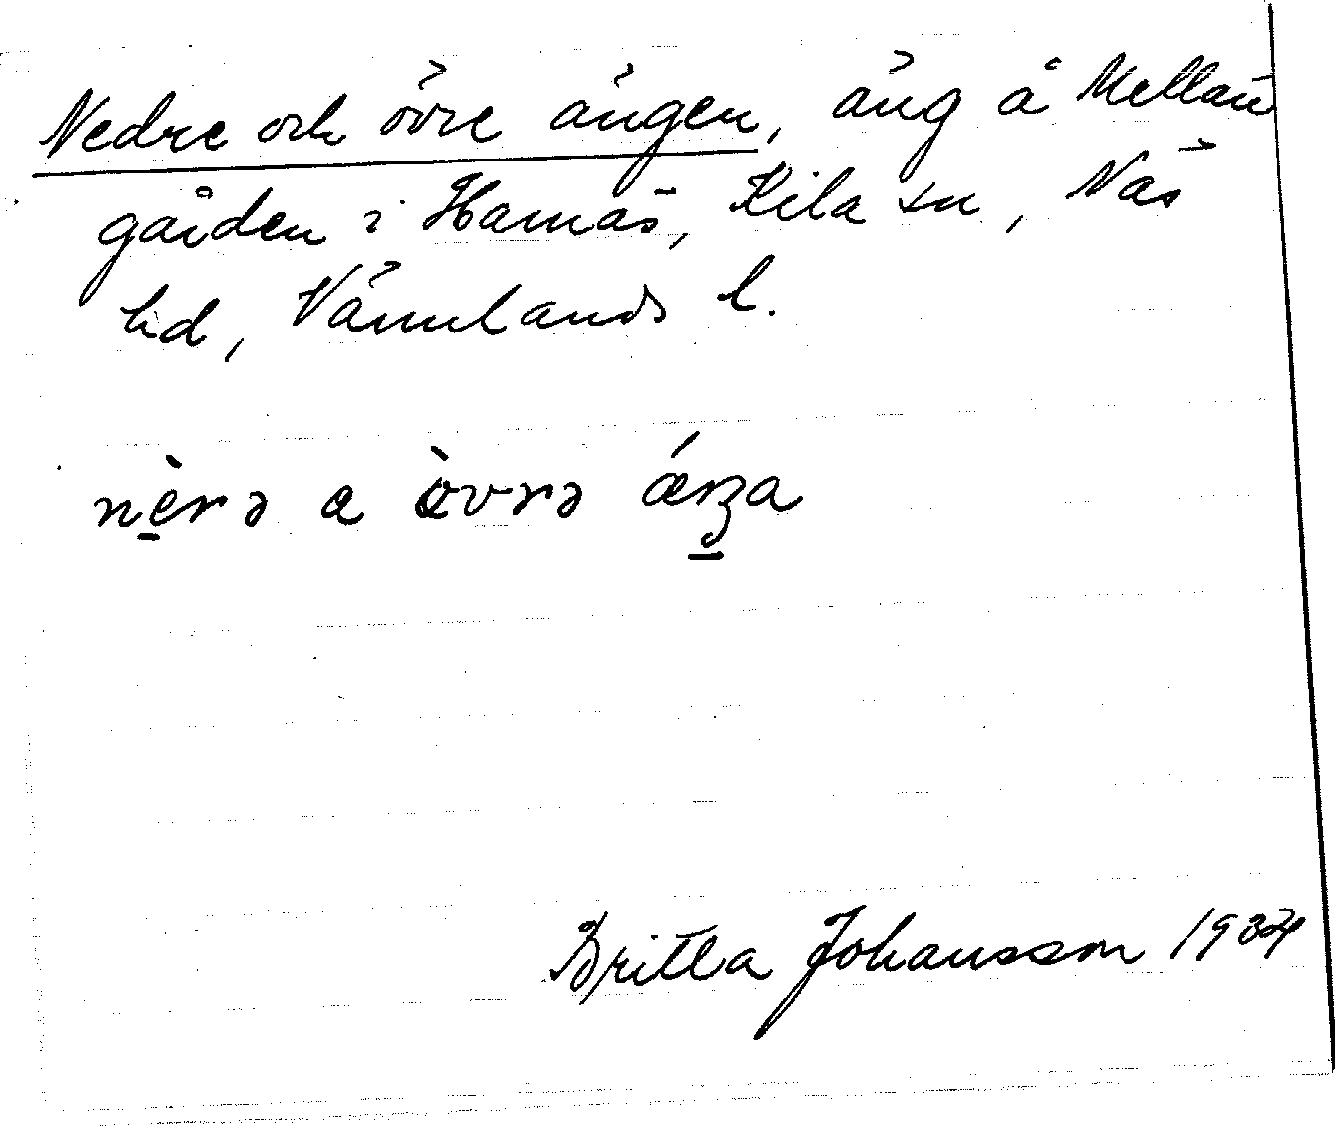 Nedre och övre ängen, äng å Mellan
gården i Harnäs, Kila sn, Näs
hd, Värmlands l.
nèrə a òvrə ǽŋa
Britta Johansson 1934